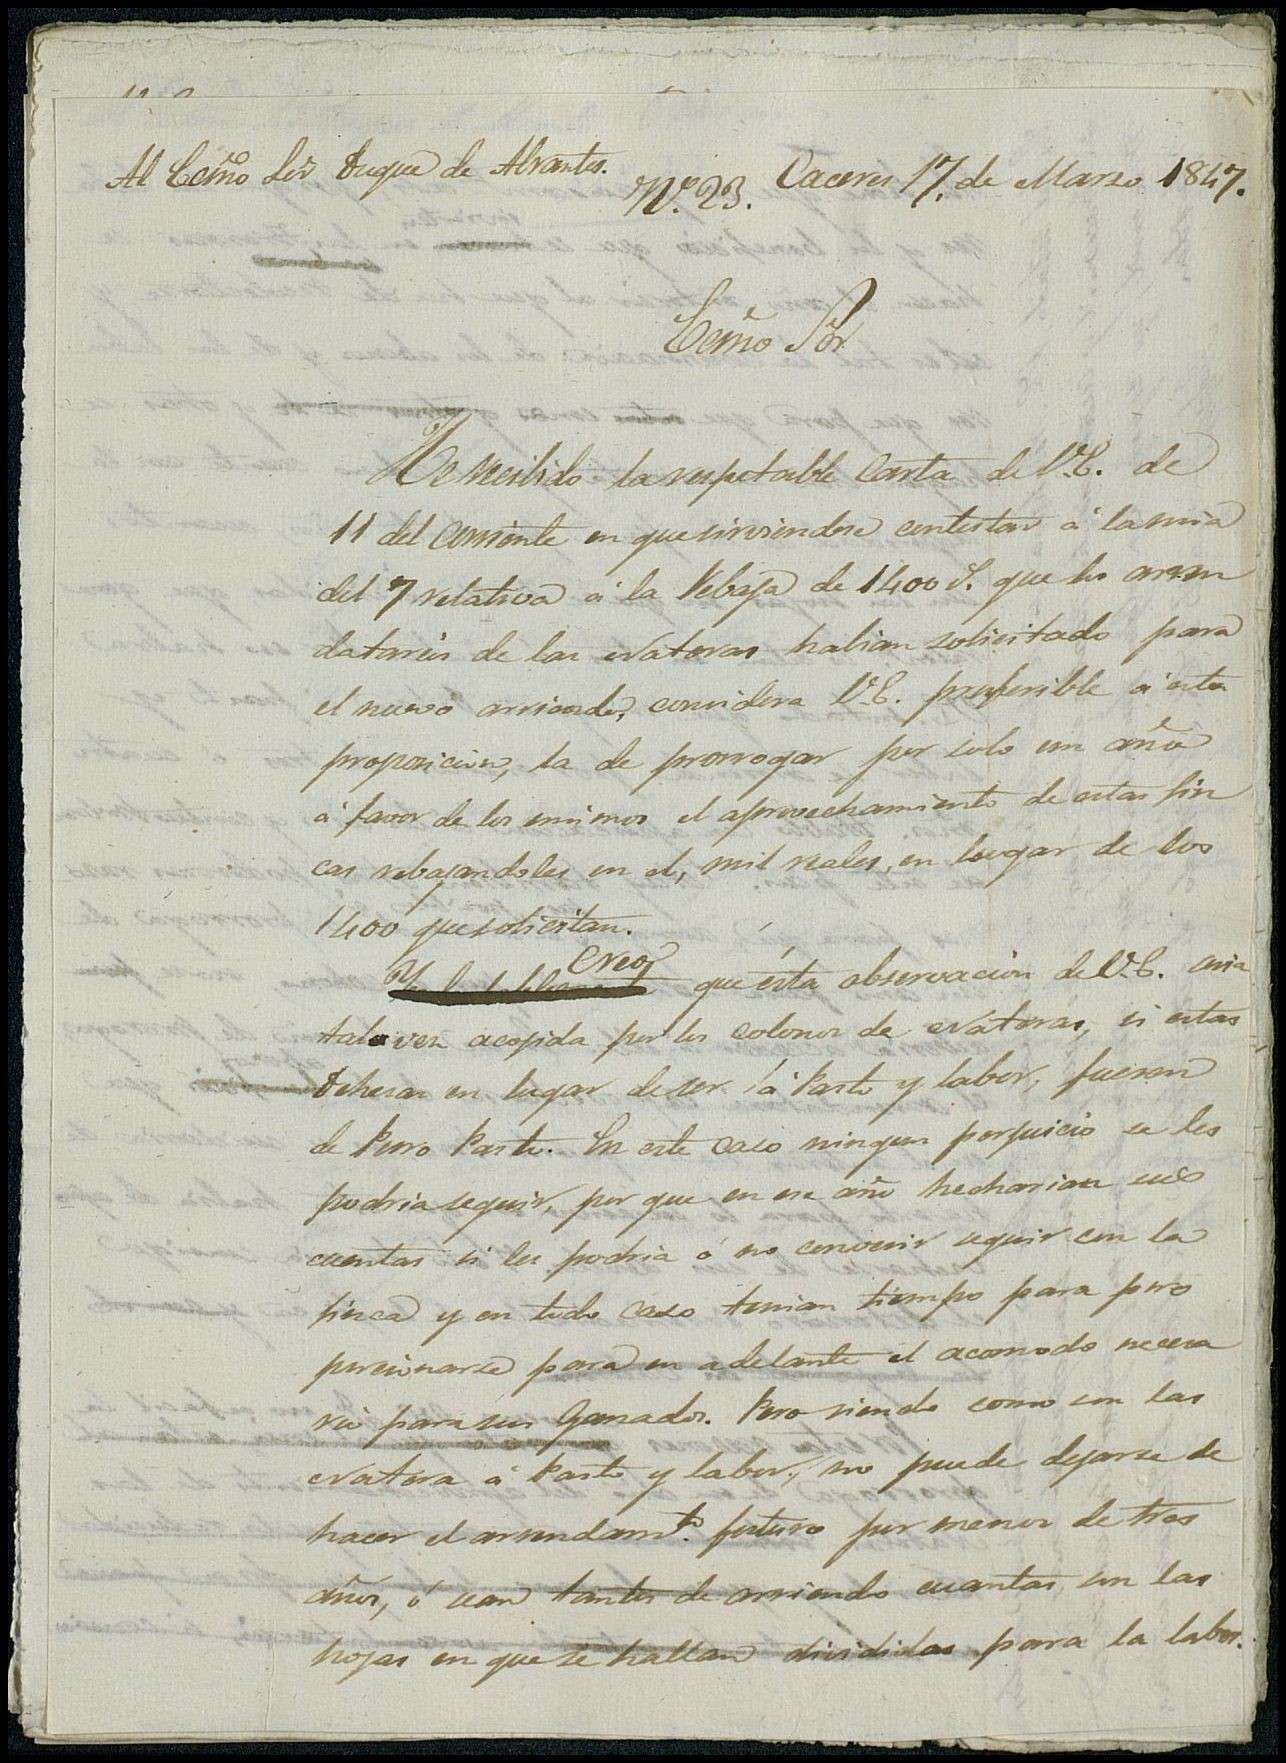 Al Ecmo Sor Duque de Abrantes.
Nº. 23.
Caceres 17, de Marzo 1847.
Ecmo Sor
He recibido la respetable Carta de V.E. de
11 del corriente en que sirviendose contestar á la mia
del 7 relativa á la Rebaja de 1400 que los arren
datarios de las Natoras habian solicitado para
el nuevo arriendo, considera V.E. preferible á esta
proposicion, la de prorrogar por solo un año
á favor de los mismos el aprovechamiento de estas fin
cas rebajandoles en el, mil reales, en lugar de los
1400 que solicitan.
Creo que ésta observacion de V.E. seria
tal vez acojida por los colonos de Natoras, si estas
Dehesas en lugar de ser á Pasto y labor, fuesen
de Puro Pasto. En este caso ningun perjuicio se les
podria seguir, por que en ese año hecharian sus
cuentas si les podria ó no convenir seguir con la
finca y en todo caso tenian tiempo para pro
porcionarse para en adelante el acomodo necesa
rio para sus Ganados. Pero siendo como son las
Natora á Pasto y labor, no puede dejarse de
hacer el arrendamto. futuro por menos de tres
años, ó sean tantos de arriendo cuantas son las
hojas en que se hallan divididas para la labor.